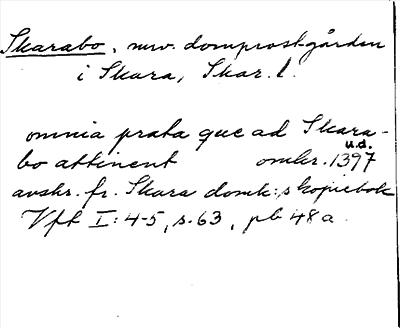 Skarabo, nuv. domprostgården
i Skara, Skar. l.
omnia prata que ad Skara-
bo attinent omkr. 1397 u.d.
avskr. fr. Skara domk:s kopiebok
Vft I: 4-5, s. 63, pb 48a